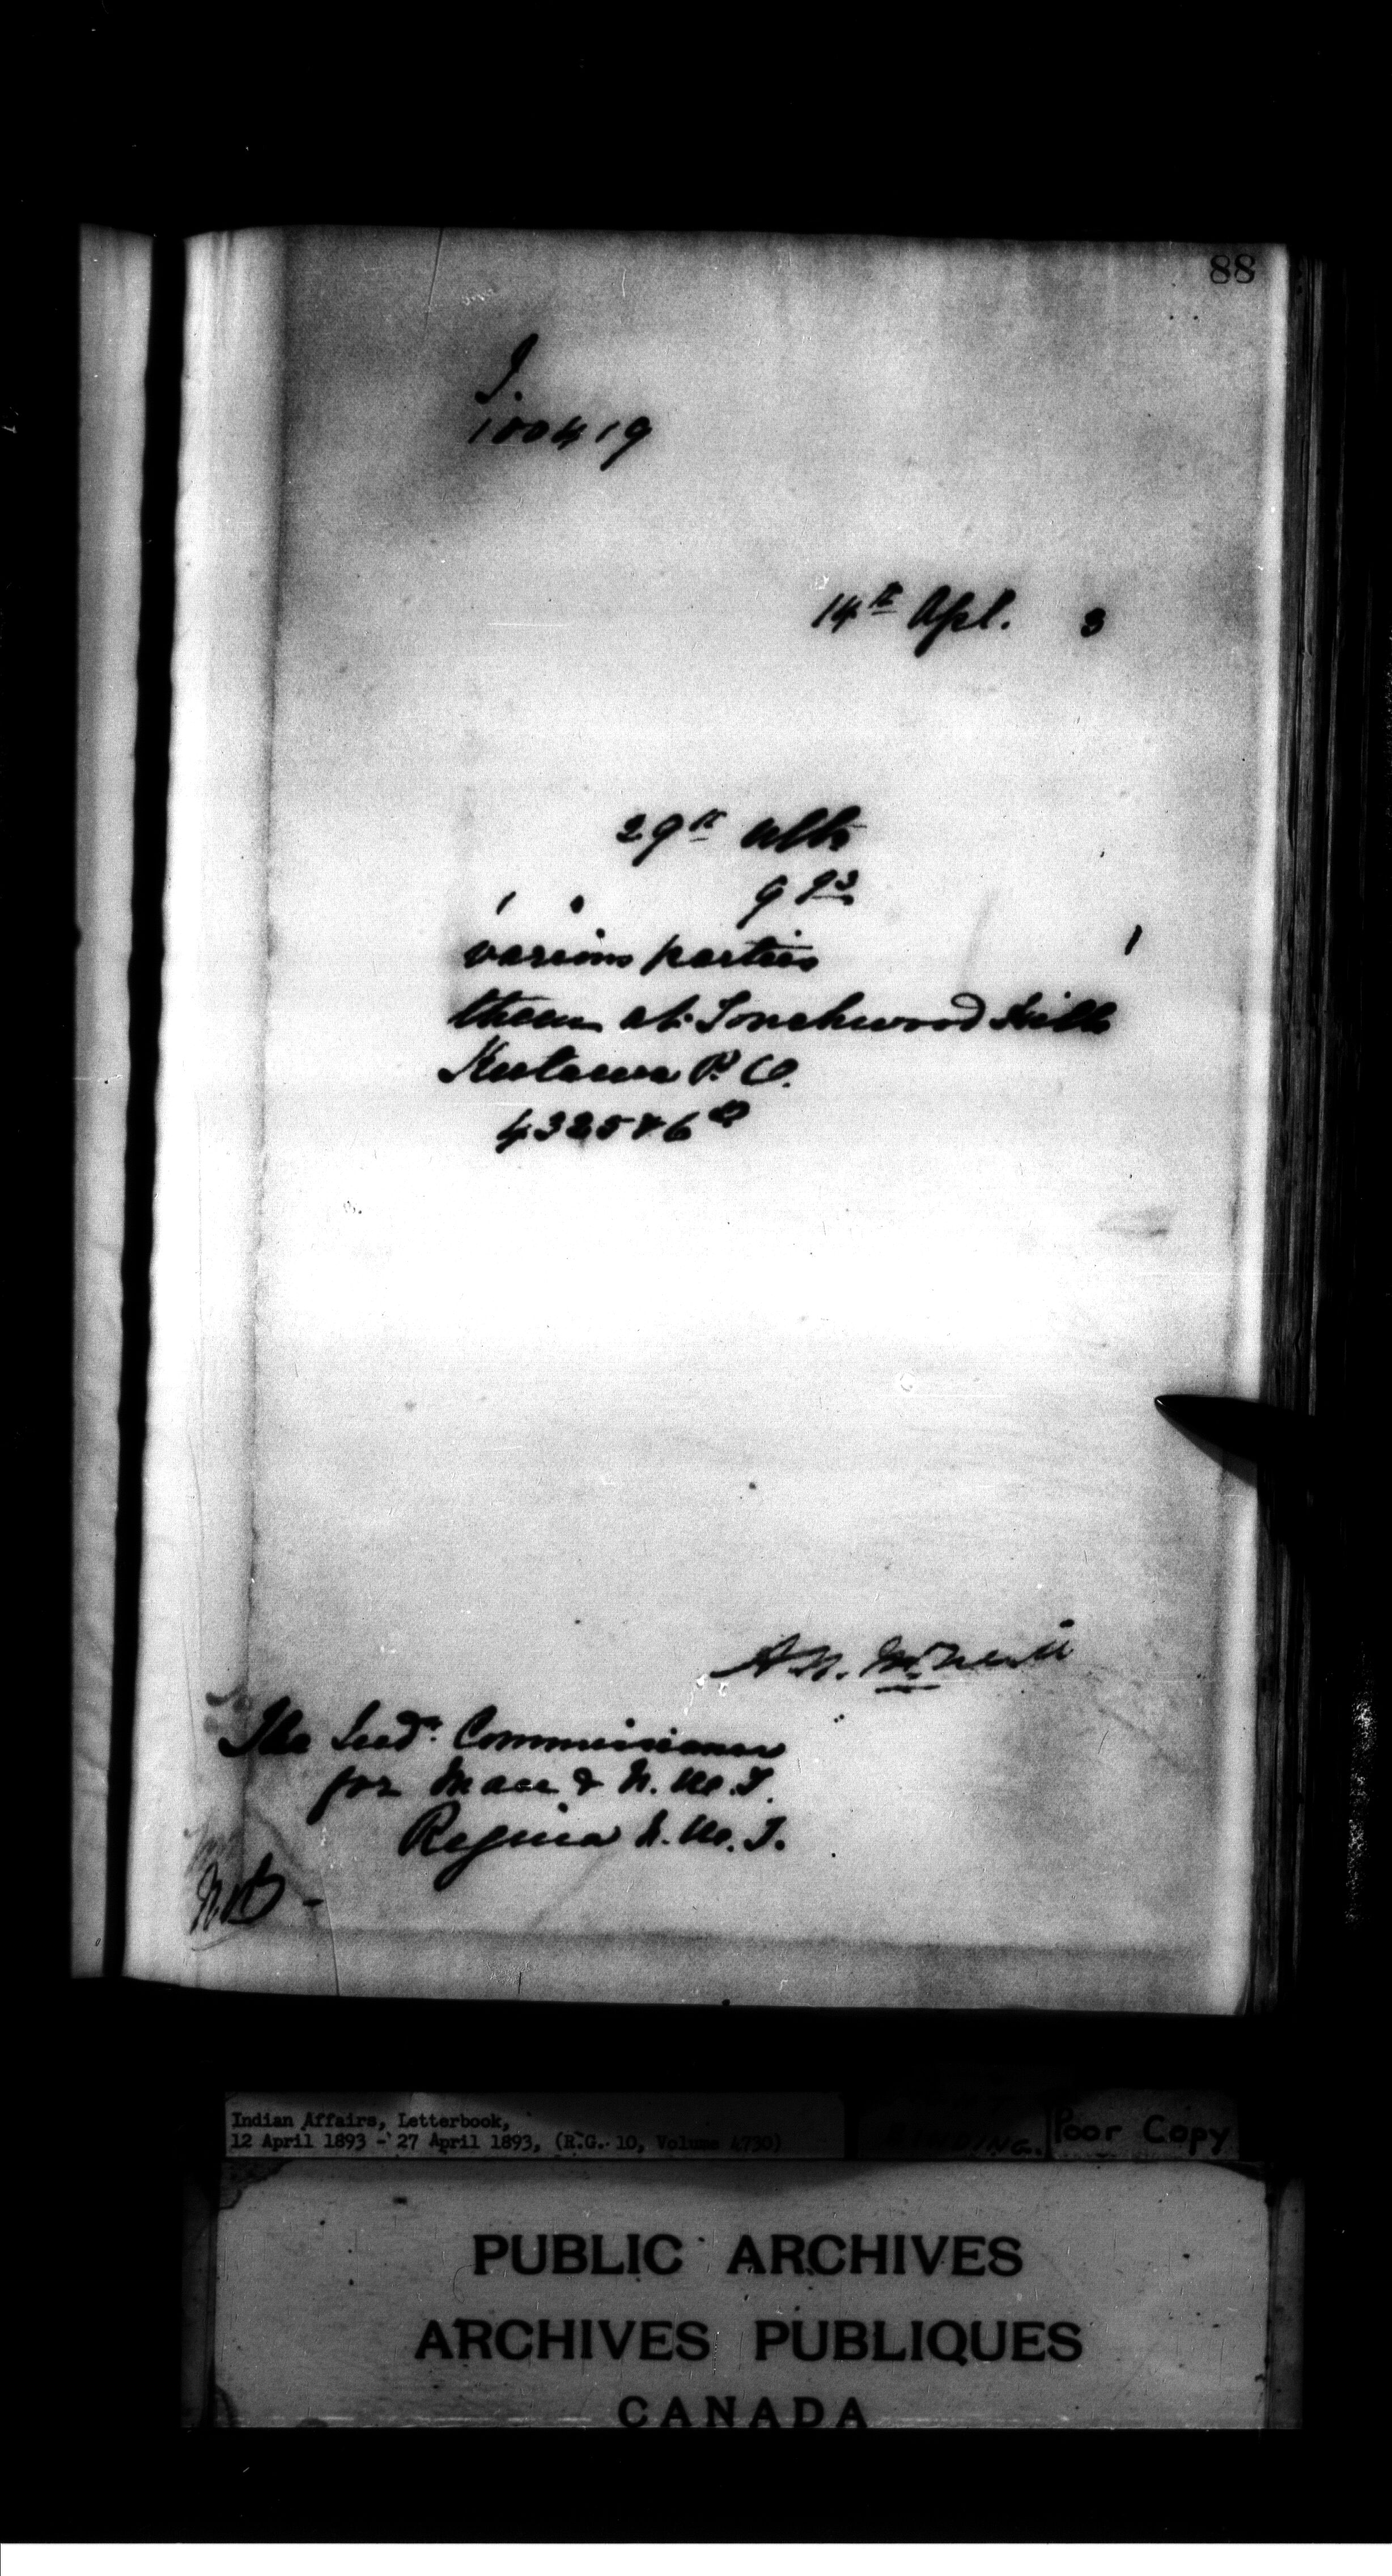 88
J.
100419
14th Apl. 3
29th ulto
993
various parties
them at Touchwood Hills
Kutawa P.O.
4325 & 6
A.N. McNeill
The Indn. Commissioner
for Man & N.W.T.
Regina N.W.T.
Indian Affairs, Letterbook,
12 April 1893 - 27 April 1893, (R.G. 10, Volume 4730)
BINDING.
Poor Copy
PUBLIC ARCHIVES
ARCHIVES PUBLIQUES
CANADA